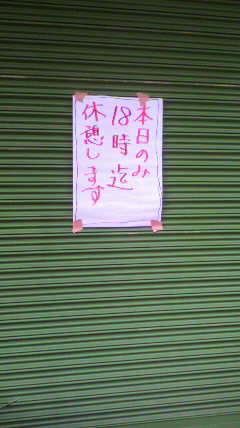 本日のみ
18時迄
休憩します